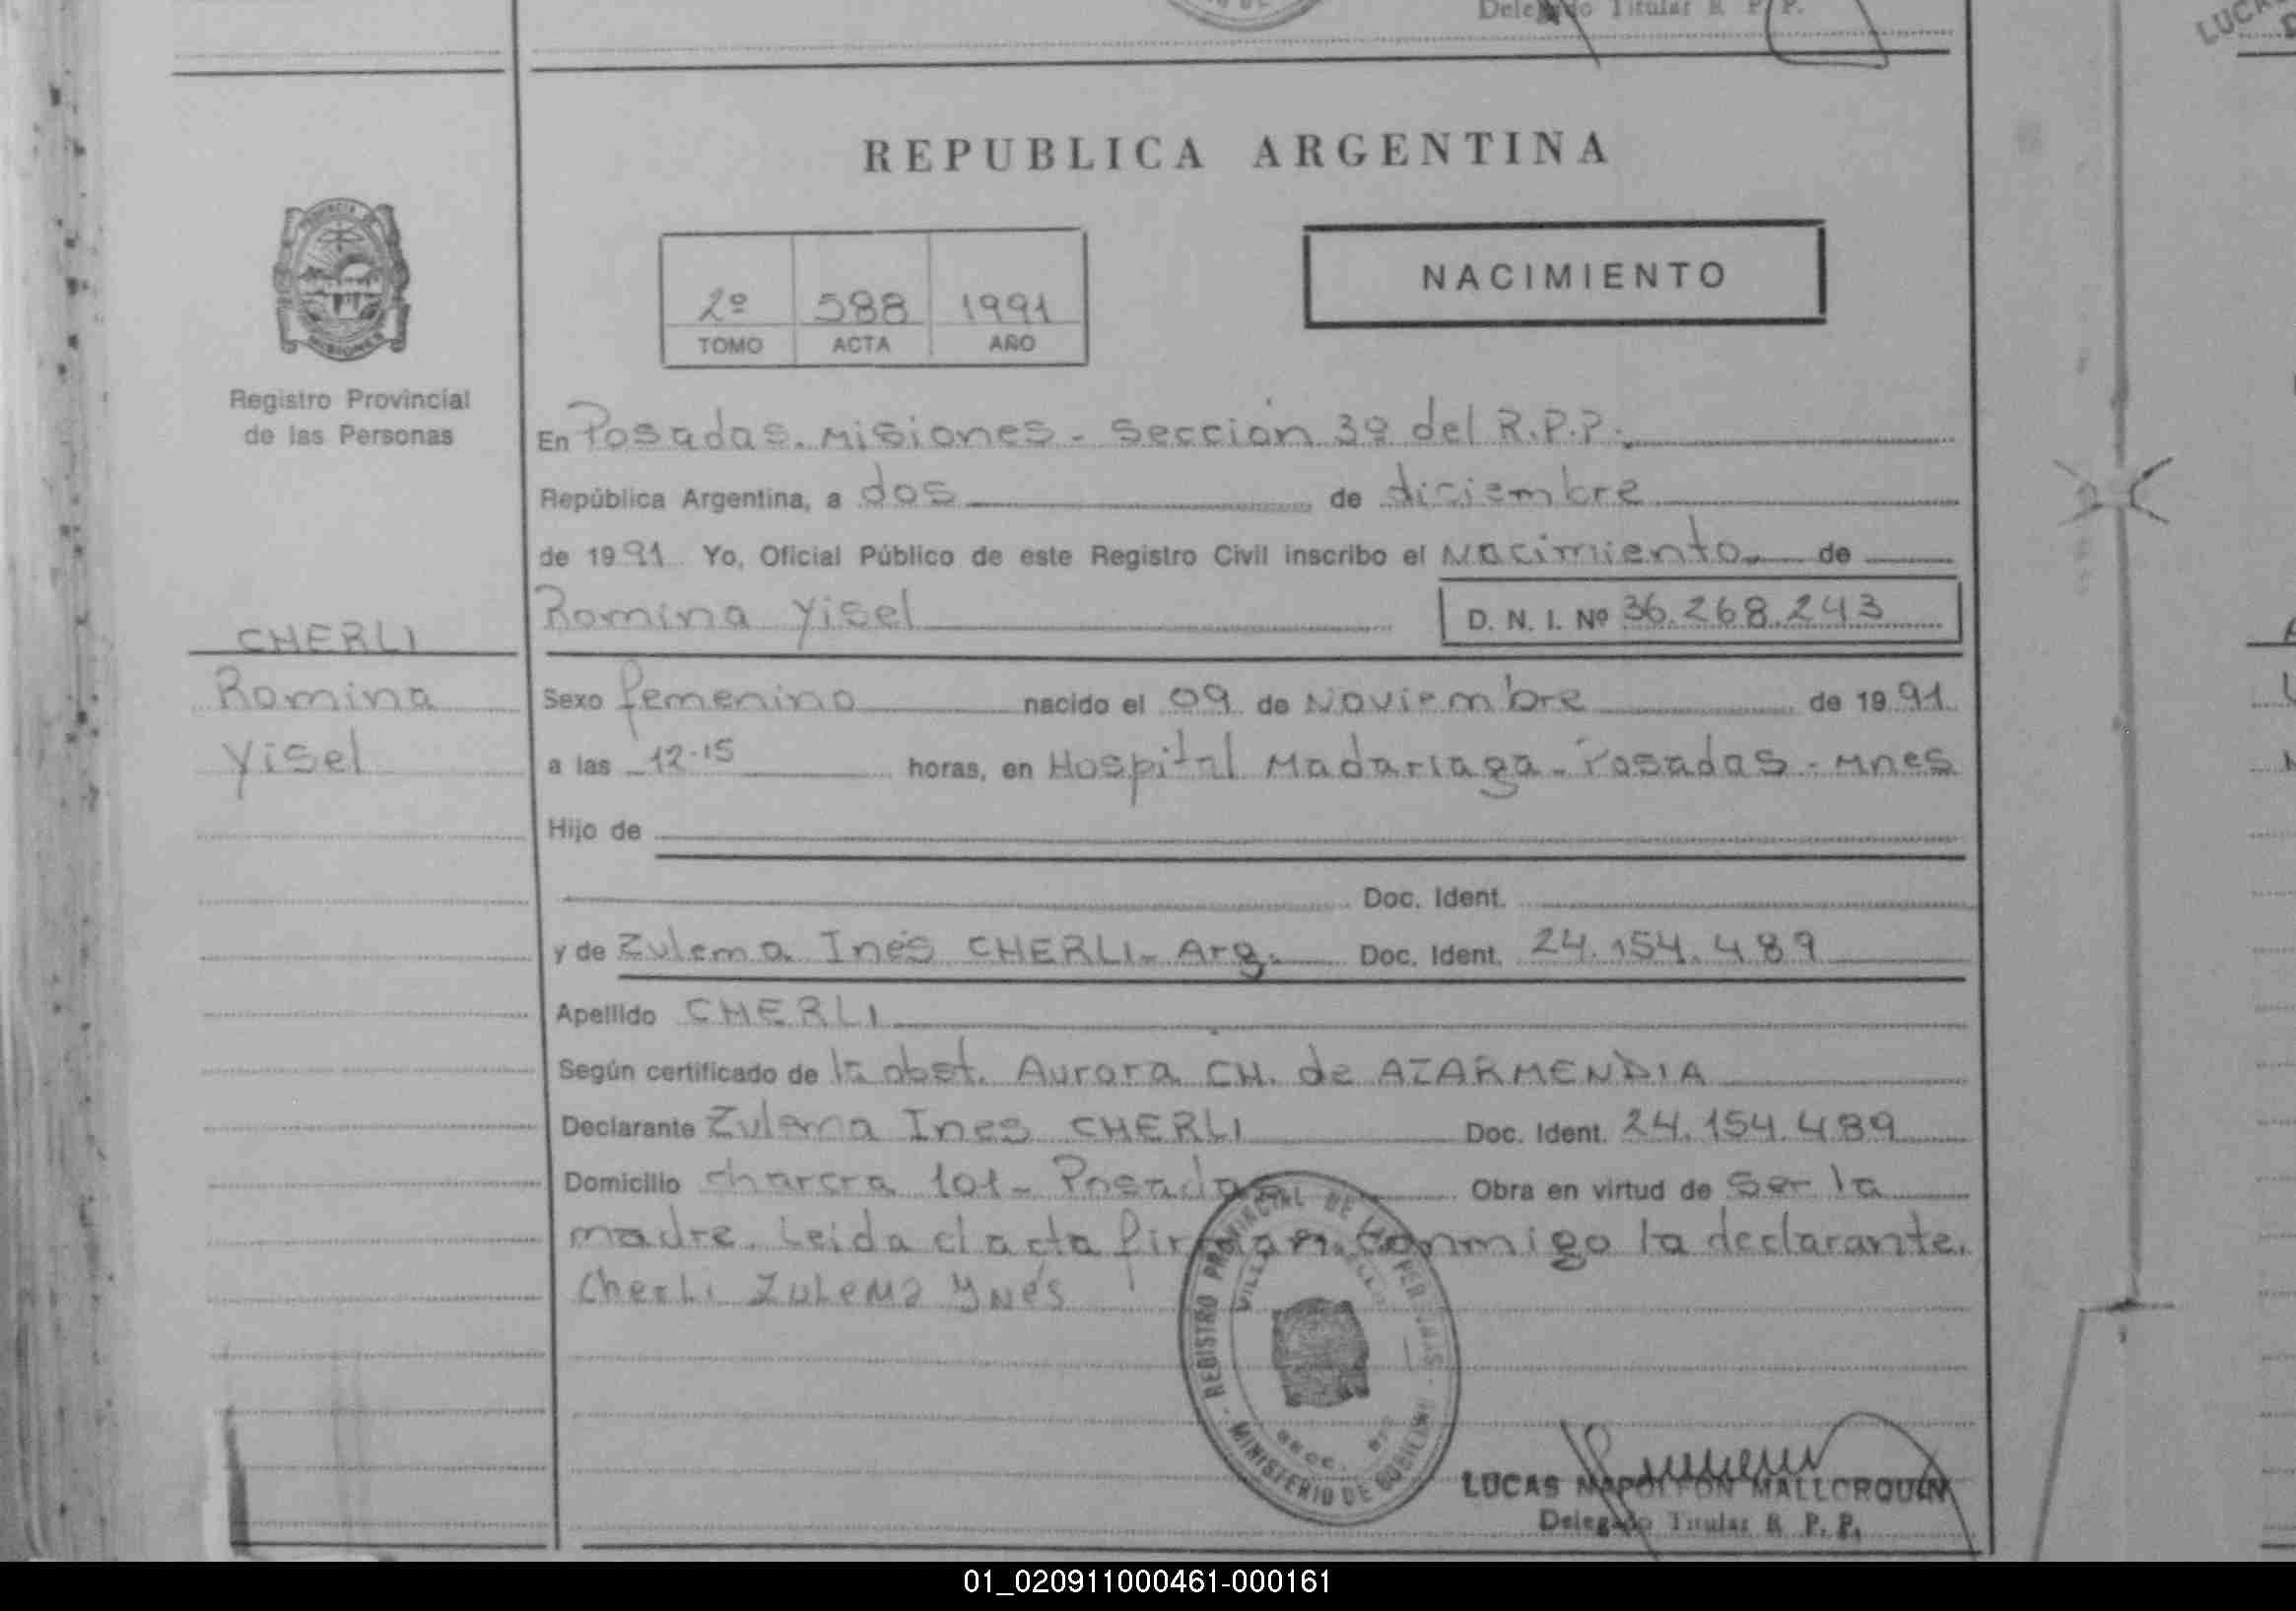 Delegado Titular R P. P.
REPUBLICA ARGENTINA
NACIMIENTO
2º 588 1991
TOMO ACTA AÑO
Registro Provincial
de las Personas
En Posadas. Misiones - Sección 3º del R.P.P.
República Argentina, a dos de diciembre
de 1991 Yo, Oficial Público de este Registro Civil inscribo el Nacimiento de
Romina Yisel D. N. I. Nº 36.268.243
CHERLI
Romina
Yisel
Sexo femenino nacido el 09 de Noviembre de 1991
a las 12.15 horas, en Hospital Madariaga - Posadas - Mnes
Hijo de
Doc. Ident.
y de Zulema Inés CHERLI - Arg. Doc. Ident. 24.154.489
Apellido CHERLI
Según certificado de la obst. Aurora CH. de AZARMENDIA
Declarante Zulema Ines CHERLI Doc. Ident. 24.154.489
Domicilio chacra 101 - Posadas Obra en virtud de Ser la
madre. Leida el acta firman conmigo la declarante.
CherLi ZuLeMa YNés
REGISTRO PROVINCIAL DE LAS PERSONAS
MINISTERIO DE GOBIERNO
LUCAS NAPOLEON MALLORQUIN
Delegado Titular R. P. P.
01_020911000461-000161